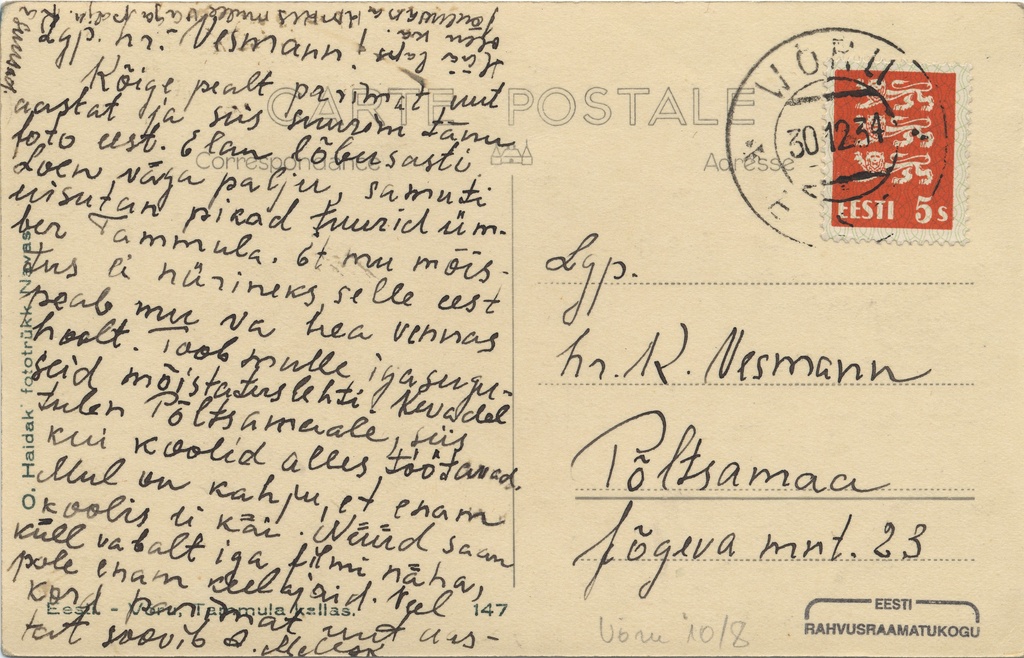 Lgp. hr. Vesmann!
Kõige pealt parimat uut
aastat ja siis suurim tänu
foto eest. Elan lõbusasti
Loen väga palju, samuti
uisutan pikad tuurid üm-
ber Tammula. Et mu mõis-
tus ei nürineks, selle eest
peab mu va hea vennas
hoolt. Toob mulle igasugu-
seid mõistatuslehti. Kevadel
tulen Põltsamaale, siis
kui koolid alles töötavad.
Mul on kahju, et enam
koolis ei käi. Nüüd saan
küll vabalt iga filmi näha,
pole enam keelajaid. Veel
kord parimat uut aas-
tat soovib
Hää laps
olen ka.
CARTE POSTALE
Correspondance
Adresse
O. Haidak' fototrükk Narvas.
Eesti - Võru, Tammula kallas.
147
WÕRU
30.12.34
EESTI
EESTI 5 s
Lgp.
hr. K. Vesmann
Põltsamaa
Jõgeva mnt. 23
Võru 10/8
EESTI
RAHVUSRAAMATUKOGU